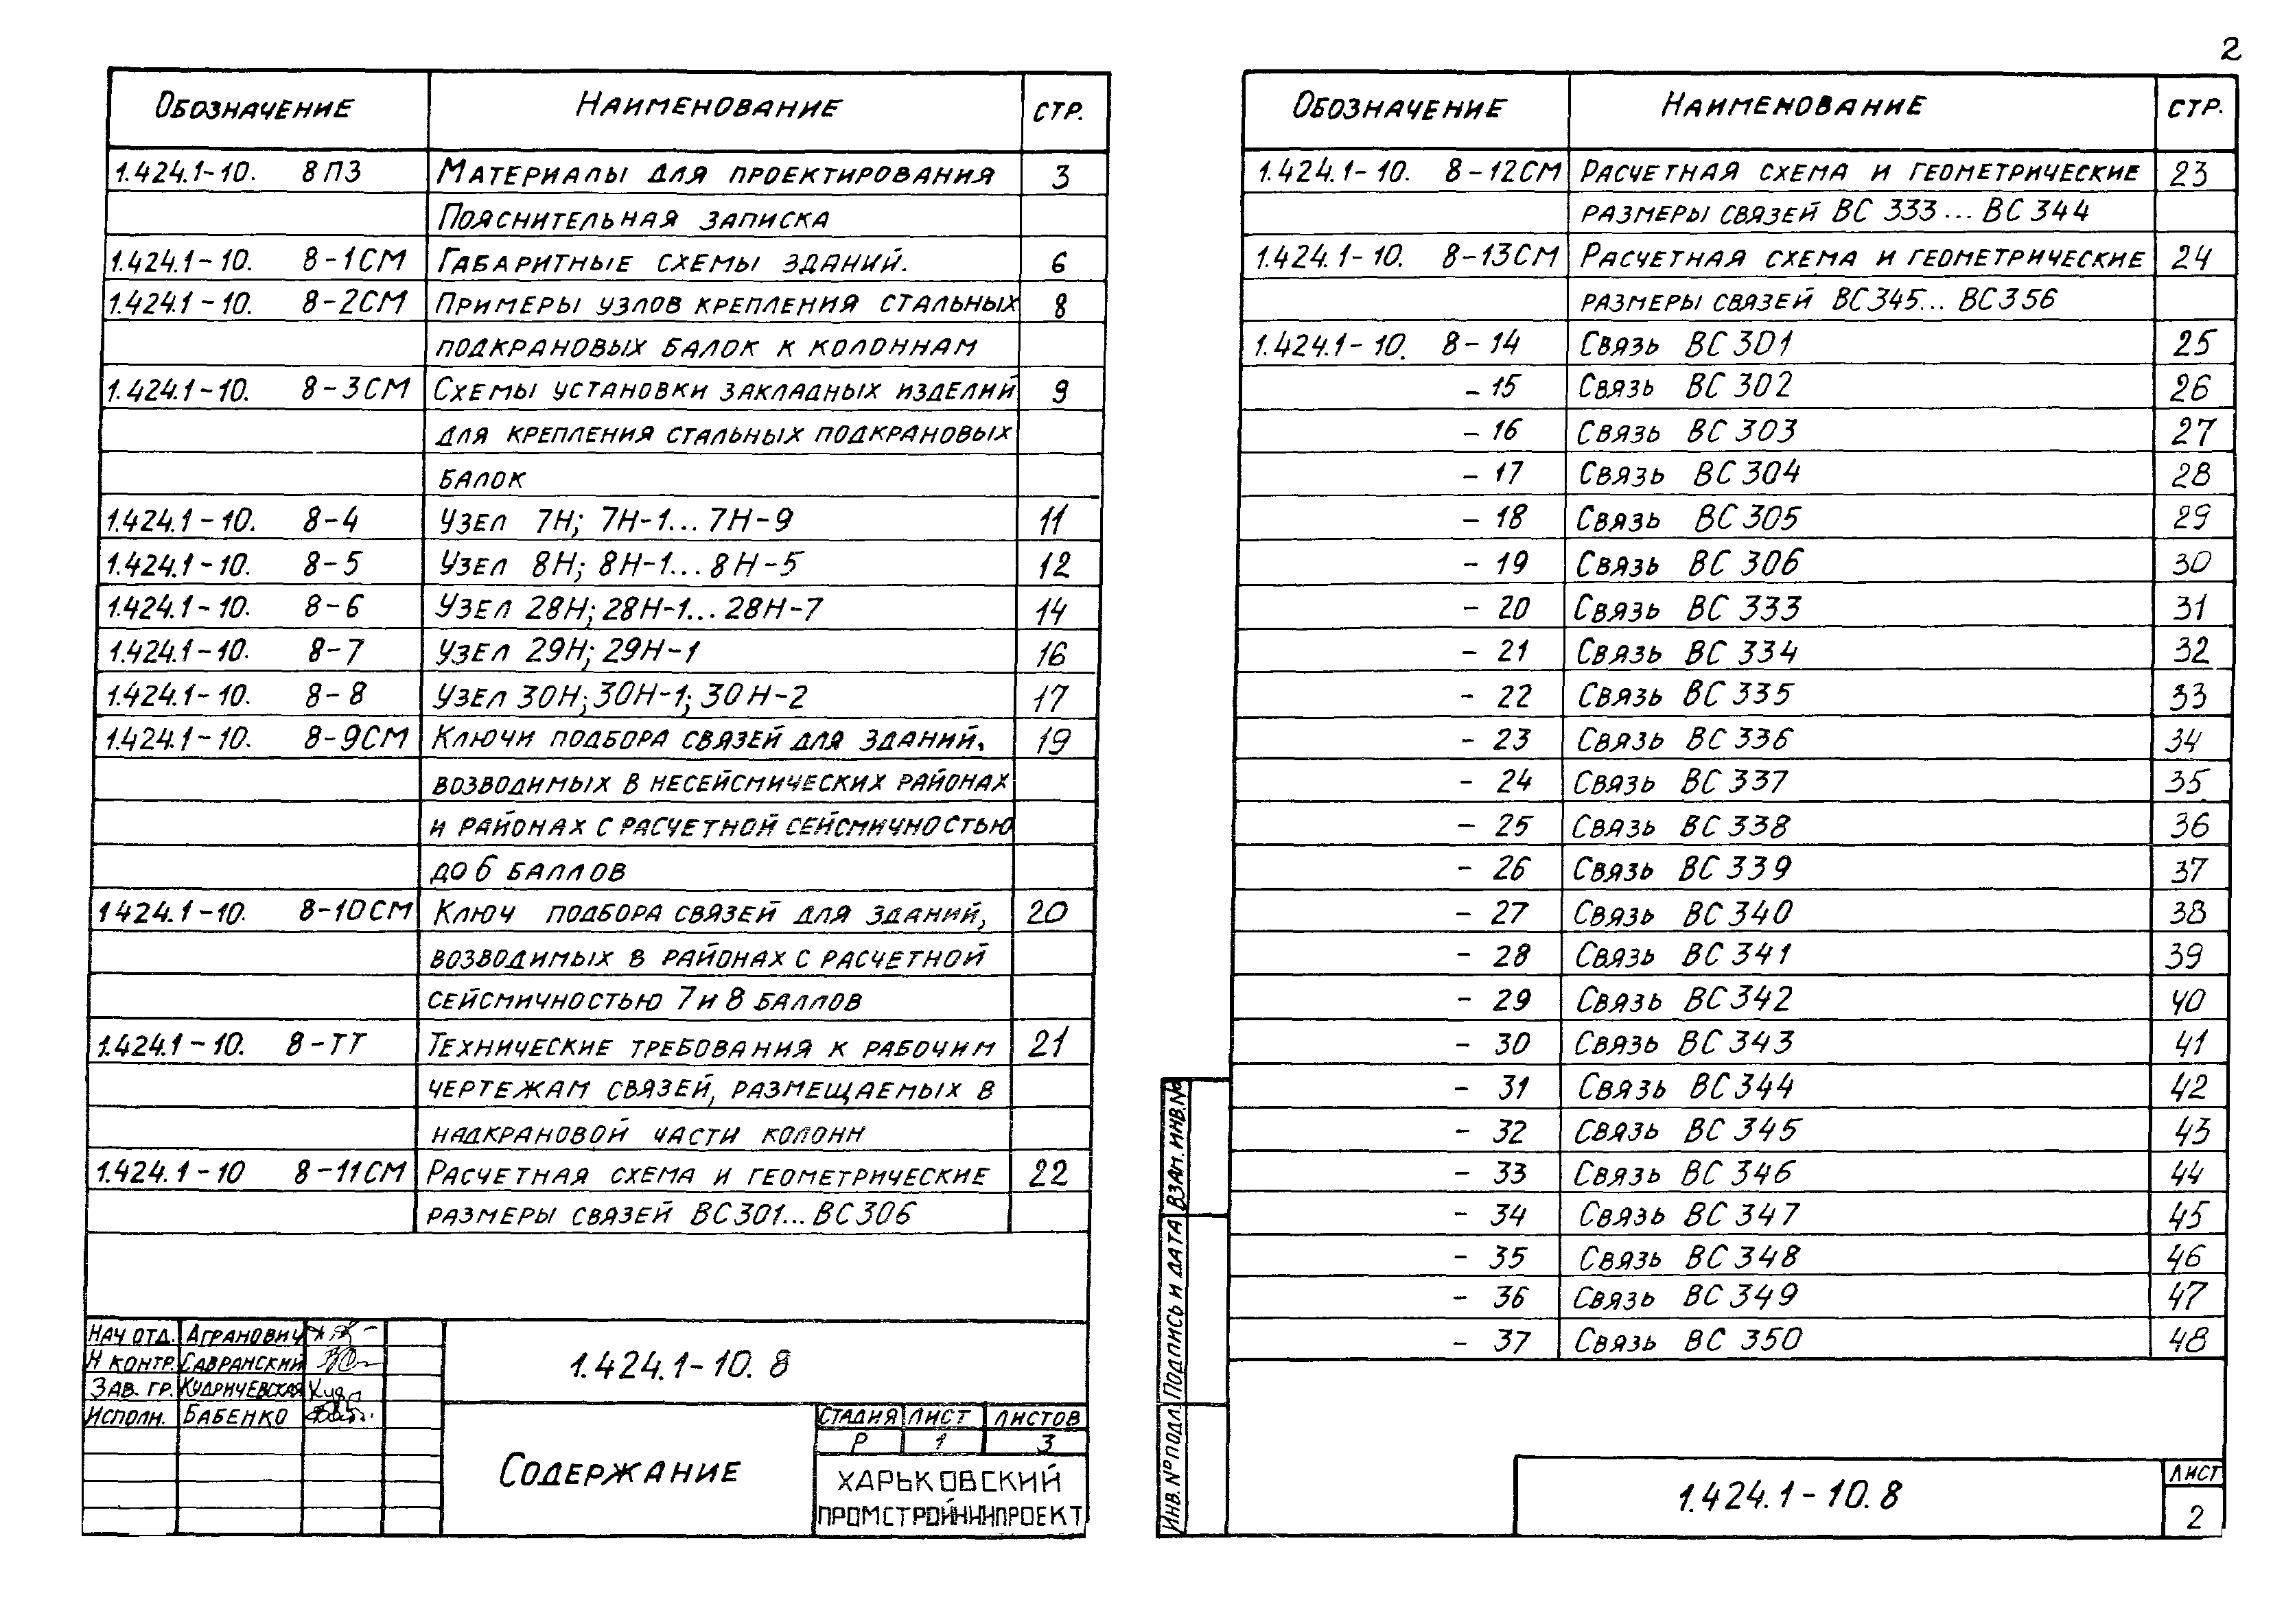 2
Обозначение Наименование стр.
1.424.1-10. 8ПЗ Материалы для проектирования 3
Пояснительная записка
1.424.1-10. 8-1СМ Габаритные схемы зданий. 6
1.424.1-10. 8-2СМ Примеры узлов крепления стальных 8
подкрановых балок к колоннам
1.424.1-10. 8-3СМ Схемы установки закладных изделий 9
для крепления стальных подкрановых
балок
1.424.1-10. 8-4 Узел 7Н; 7Н-1... 7Н-9 11
1.424.1-10. 8-5 Узел 8Н; 8Н-1... 8Н-5 12
1.424.1-10. 8-6 Узел 28Н; 28Н-1... 28Н-7 14
1.424.1-10. 8-7 Узел 29Н; 29Н-1 16
1.424.1-10. 8-8 Узел 30Н; 30Н-1; 30Н-2 17
1.424.1-10. 8-9СМ Ключи подбора связей для зданий, 19
возводимых в несейсмических районах
и районах с расчетной сейсмичностью
до 6 баллов
1424.1-10. 8-10СМ Ключ подбора связей для зданий, 20
возводимых в районах с расчетной
сейсмичностью 7 и 8 баллов
1.424.1-10. 8-ТТ Технические требования к рабочим 21
чертежам связей, размещаемых в
надкрановой части колонн
1.424.1-10 8-11СМ Расчетная схема и геометрические 22
размеры связей ВС301... ВС306
Нач отд. Агранович
Н контр. Савранский
Зав. гр. Кудричевская
Исполн. Бабенко
1.424.1-10. 8
Содержание
стадия лист листов
Р 1 3
Харьковский
Промстройниипроект
Обозначение Наименование стр.
1.424.1-10. 8-12СМ Расчетная схема и геометрические 23
размеры связей ВС 333... ВС 344
1.424.1-10. 8-13СМ Расчетная схема и геометрические 24
размеры связей ВС345... ВС356
1.424.1-10. 8-14 Связь ВС 301 25
-15 Связь ВС 302 26
-16 Связь ВС 303 27
-17 Связь ВС 304 28
-18 Связь ВС 305 29
-19 Связь ВС 306 30
-20 Связь ВС 333 31
-21 Связь ВС 334 32
-22 Связь ВС 335 33
-23 Связь ВС 336 34
-24 Связь ВС 337 35
-25 Связь ВС 338 36
-26 Связь ВС 339 37
-27 Связь ВС 340 38
-28 Связь ВС 341 39
-29 Связь ВС 342 40
-30 Связь ВС 343 41
-31 Связь ВС 344 42
-32 Связь ВС 345 43
-33 Связь ВС 346 44
-34 Связь ВС 347 45
-35 Связь ВС 348 46
-36 Связь ВС 349 47
-37 Связь ВС 350 48
Взам. инв.№
Подпись и дата
Инв. № подл
1.424.1-10. 8
лист
2